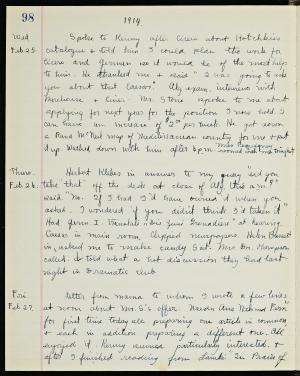 98
1914.
Wed. Spoke to Kenny after Cicero about Hotchkiss
Feb. 25. catalogue & told him I could plan the work for
Cicero and German as it would be of the most help
to him. He thanked me & said "I was going to ask
you about that Caesar.
Mr. Stone spoke to me about
applying for next year for the position I now hold. I
can have an increase of $2 per week. He got down
a Rand McNally map of Mediterranean country for me & put
it up. Walked down with him after 6 p.m.
Thurs. Herbert in answer to my query "did you
Feb. 26. take that off the desk at close of Alg. this a.m.?"
said "No. If I had I'd have owned it when you
asked. I wondered if you didn't think I'd taken it"
Had Gern. I translate at hearing.
Caesar in main room. Clipped newspapers. Helen
in, asked me to make candy Sat. Mrs. Wm. Thompson
called & told what a hot discussion they had last
night in Dramatic club.
Fri. Letter from mama to whom I wrote a few lines
Feb. 27. at noon about Mr. S's offer.
for first time today all preparing one article in common
& each in addition preparing a different one. All
enjoyed it. Kenny seemed particularly interested. &
after I finished reading from "In Praise of